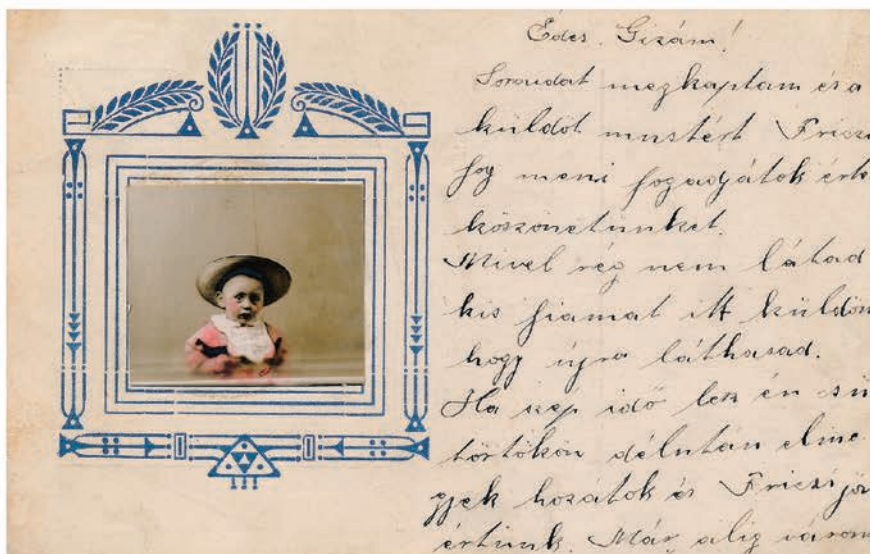 Édes. Gizám!
Soraidat megkaptam és a
küldöt mustért Friczi
fog meni fogadjátok érte
köszönetünket.
Mivel rég nem látad
kis fiamat itt küldöm
hogy újra láthasad.
Ha szep idő lesz én csü
törtökön délután elme
gyek hozátok és Friczi jön
értünk. Már alig várom